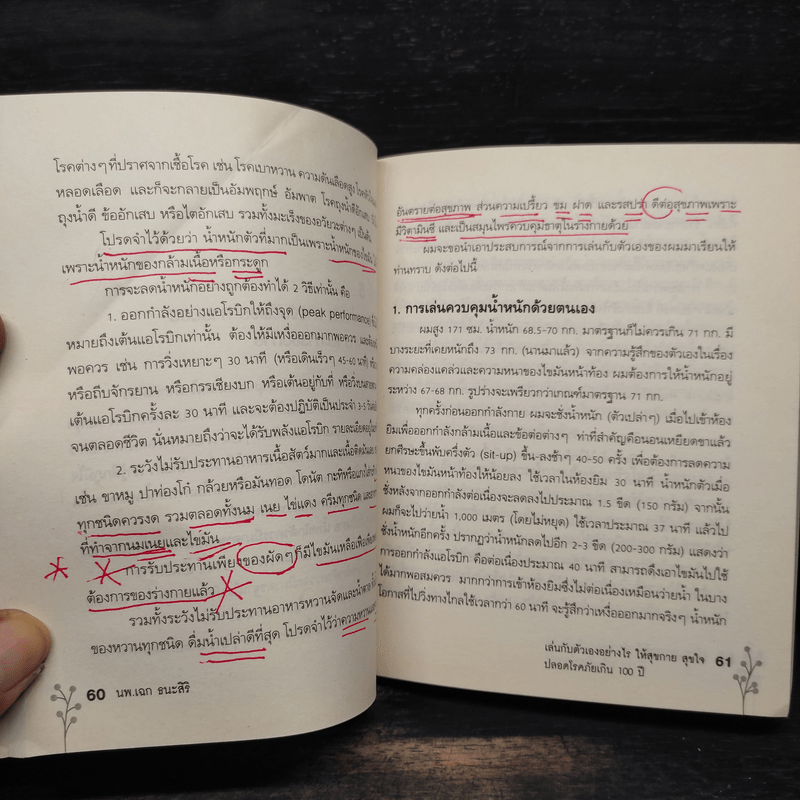 โรคต่างๆ ที่ปราศจากเชื้อโรค เช่น โรคเบาหวาน ความดันเลือดสูง
หลอดเลือด และก็จะกลายเป็นอัมพฤกษ์ อัมพาต โรคถุงน้ำดี
ถุงน้ำดี ข้ออักเสบ หรือไตอักเสบ รวมทั้งมะเร็งของอวัยวะต่างๆ เป็นต้น
โปรดจำไว้ด้วยว่า น้ำหนักตัวที่มากเป็นเพราะน้ำหนักของ
เพราะน้ำหนักของกล้ามเนื้อหรือกระดูก
การจะลดน้ำหนักอย่างถูกต้องทำได้ 2 วิธีเท่านั้น คือ
1. ออกกำลังอย่างแอโรบิกให้ถึงจุด (peak performance)
หมายถึงเต้นแอโรบิกเท่านั้น ต้องให้มีเหงื่อออกมากพอควร
พอควร เช่น การวิ่งเหยาะๆ 30 นาที (หรือเดินเร็วๆ 45-60 นาที)
หรือถีบจักรยาน หรือกรรเชียงบก หรือเต้นอยู่กับที่
เต้นแอโรบิกครั้งละ 30 นาที และจะต้องปฏิบัติเป็นประจำ 3-5
จนตลอดชีวิต นั่นหมายถึงว่าจะได้รับพลังแอโรบิก
2. ระวังไม่รับประทานอาหารเนื้อสัตว์มากและเนื้อติดมัน
เช่น ขาหมู ปาท่องโก๋ กล้วยหรือมันทอด โดนัท กะทิหรือแกงใส่กะทิ
ทุกชนิดควรงด รวมตลอดทั้งนม เนย ไข่แดง ครีมทุกชนิด
ที่ทำจากนมเนยและไขมัน
การรับประทานเพียงของผัดๆ ก็มีไขมันเหลือเฟือ
ต้องการของร่างกายแล้ว
รวมทั้งระวังไม่รับประทานอาหารหวานจัดและน้ำตาล
ของหวานทุกชนิด ดื่มน้ำเปล่าดีที่สุด โปรดจำไว้ว่าความหวาน
60 นพ.เฉก ธนะสิริ
อันตรายต่อสุขภาพ ส่วนความเปรี้ยว ขม ฝาด และรสปร่า ดีต่อสุขภาพเพราะ
มีวิตามินซี และเป็นสมุนไพรควบคุมธาตุในร่างกายด้วย
ผมจะขอนำเอาประสบการณ์จากการเล่นกับตัวเองของผมมาเรียนให้
ท่านทราบ ดังต่อไปนี้
1. การเล่นควบคุมน้ำหนักด้วยตนเอง
ผมสูง 171 ซม. น้ำหนัก 68.5-70 กก. มาตรฐานก็ไม่ควรเกิน 71 กก. มี
บางระยะที่เคยหนักถึง 73 กก. (นานมาแล้ว) จากความรู้สึกของตัวเองในเรื่อง
ความคล่องแคล่วและความหนาของไขมันหน้าท้อง ผมต้องการให้น้ำหนักอยู่
ระหว่าง 67-68 กก. รูปร่างจะเพรียวกว่าเกณฑ์มาตรฐาน 71 กก.
ทุกครั้งก่อนออกกำลังกาย ผมจะชั่งน้ำหนัก (ตัวเปล่าๆ) เมื่อไปเข้าห้อง
ยิมเพื่อออกกำลังกล้ามเนื้อและข้อต่อต่างๆ ท่าที่สำคัญคือนอนเหยียดขาแล้ว
ยกศีรษะขึ้นพับครึ่งตัว (sit-up) ขึ้น-ลงช้าๆ 40-50 ครั้ง เพื่อต้องการลดความ
หนาของไขมันหน้าท้องให้น้อยลง ใช้เวลาในห้องยิม 30 นาที น้ำหนักตัวเมื่อ
ชั่งหลังจากออกกำลังต่อเนื่องจะลดลงไปประมาณ 1.5 ขีด (150 กรัม) จากนั้น
ผมก็จะไปว่ายน้ำ 1,000 เมตร (โดยไม่หยุด) ใช้เวลาประมาณ 37 นาที แล้วไป
ชั่งน้ำหนักอีกครั้ง ปรากฏว่าน้ำหนักลดไปอีก 2-3 ขีด (200-300 กรัม) แสดงว่า
การออกกำลังแอโรบิก คือต่อเนื่องประมาณ 40 นาที สามารถดึงเอาไขมันไปใช้
ได้มากพอสมควร มากกว่าการเข้าห้องยิมซึ่งไม่ต่อเนื่องเหมือนว่ายน้ำ ในบาง
โอกาสที่ไปวิ่งทางไกลใช้เวลากว่า 60 นาที จะรู้สึกว่าเหงื่อออกมากจริงๆ น้ำหนัก
เล่นกับตัวเองอย่างไร ให้สุขกาย สุขใจ 61
ปลอดโรคภัยเกิน 100 ปี